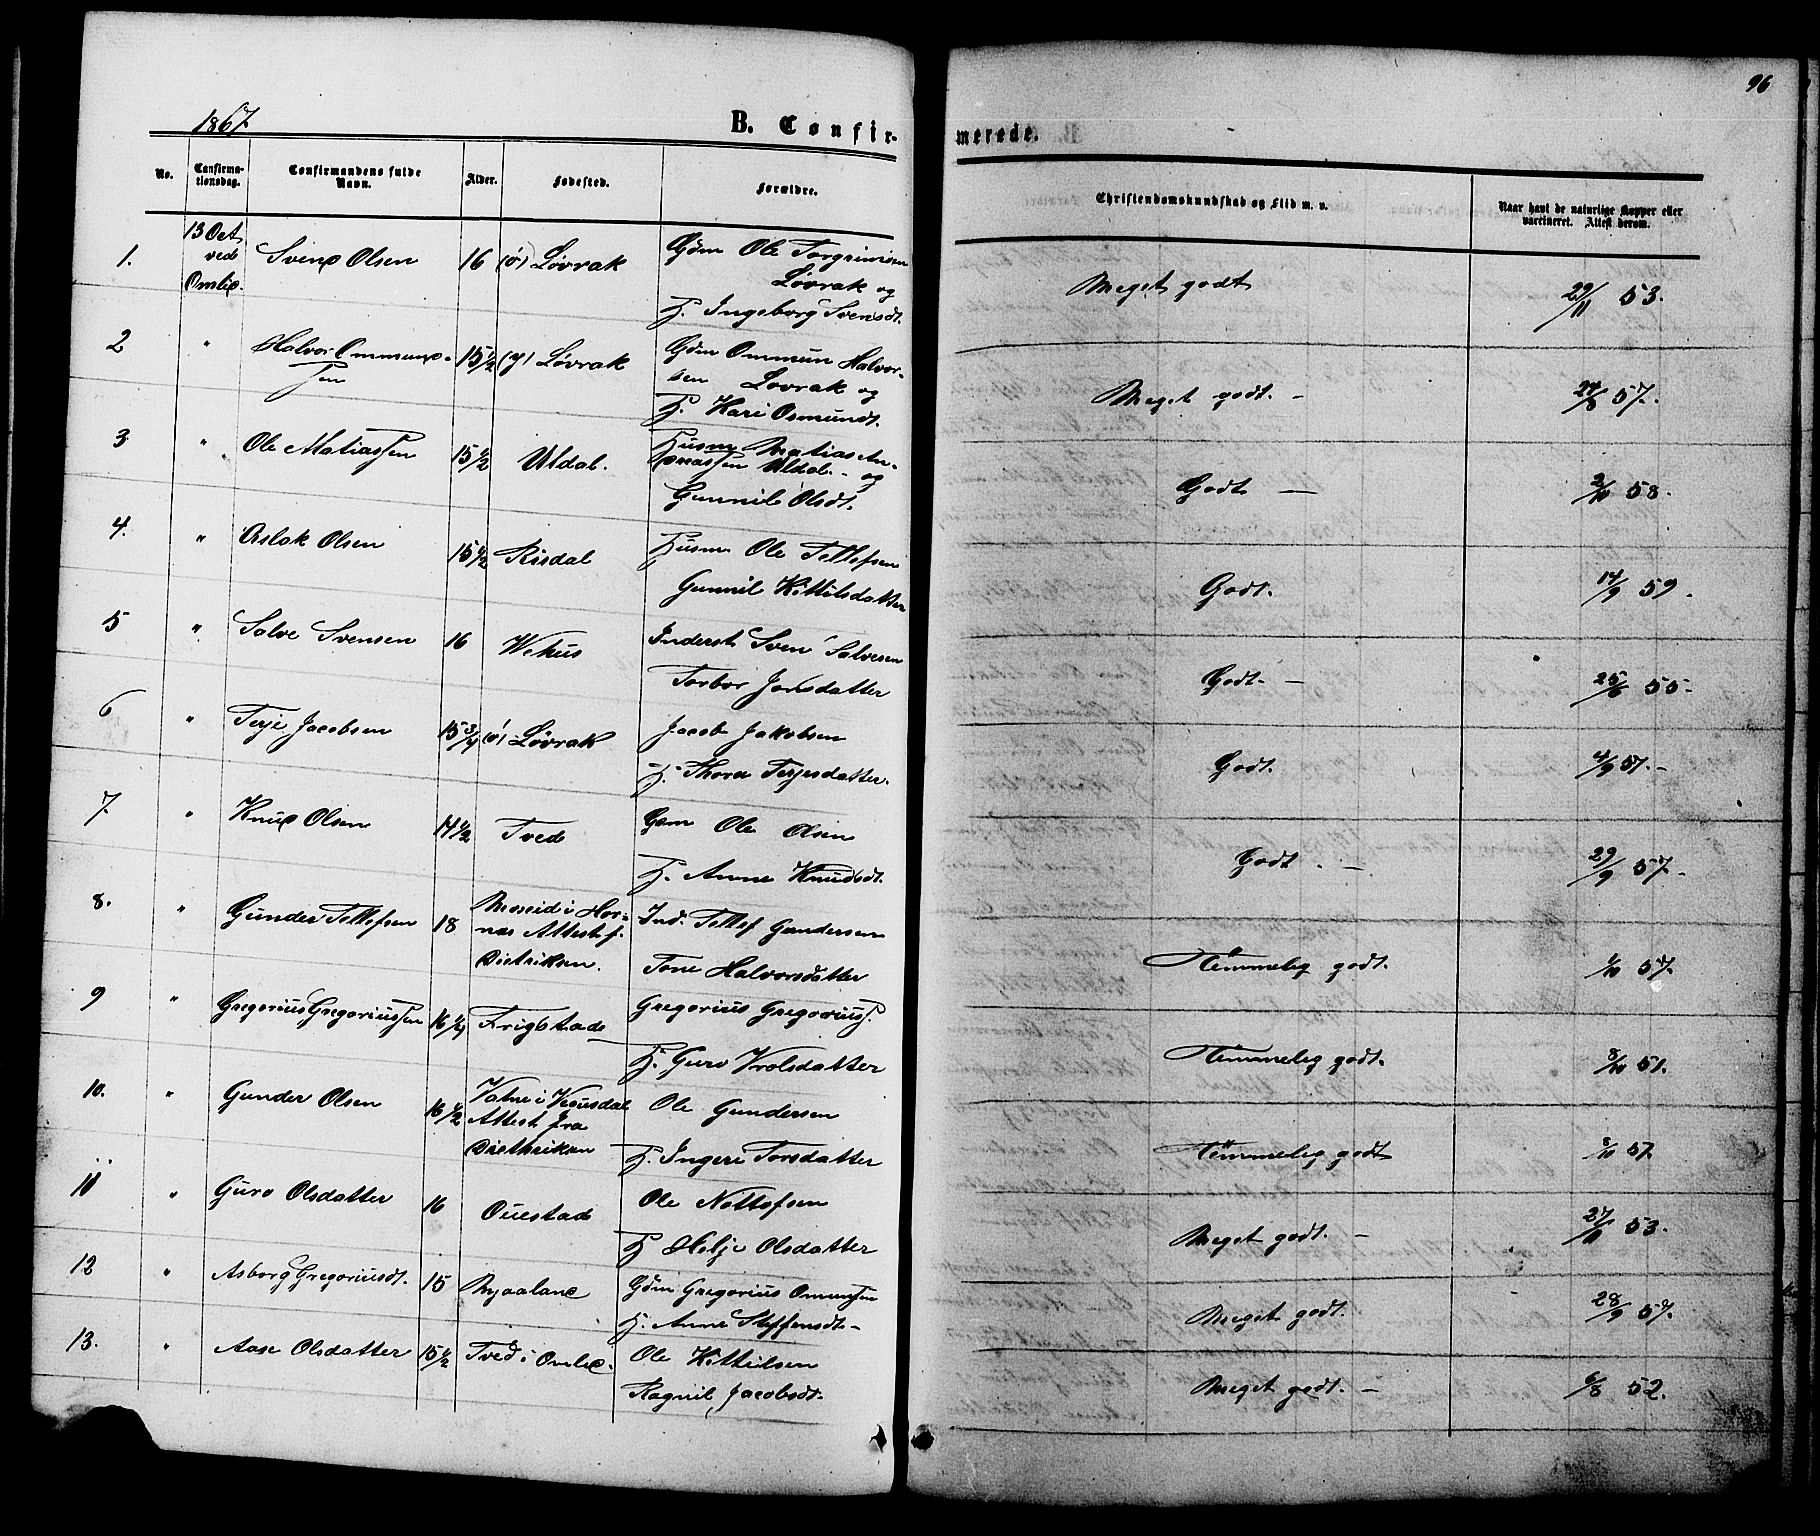 96
1867.
B. Confir-
merede.
No.
Confirma-
tionsdag.
Confirmandens fulde
Navn.
Alder.
Fødested.
Forældre.
Christendomskundskab og Flid m. v.
Naar havt de naturlige Kopper eller
vaccineret. Attest derom.
1. 13 Oct Svend Olsen 16 (ø) Løvrak Gdm Ole Torgrimsen
ved Løvrak og
Omlid. H. Ingeborg Svensdt.
Meget godt 29/11 53.
2 " Halvor Ommund- 15 1/2 (y) Løvrak Gdm Ommun Halvor-
sen sen Løvrak og
H. Kari Osmundt.
Meget godt. - 24/8 57.
3 " Ole Matiassen 15 1/2 Uldal. Husm Matias
Uldal - og
Gunnil Olsdt.
Godt - 2/10 58.
4. " Aslak Olsen 15 1/2 Risdal Husm Ole Tellefsen
Gunnil Kittilsdatter
Godt. 14/9 59
5 " Salve Svensen 16 Wehus Inderst Sven Salvesen
Torbor Jonsdatter
Godt - 25/6 55-
6 " Terje Jacobsen 15 3/4 (ø) Løvrak Jacob Jakobsen
H. Thora Terjesdatter.
Godt. 4/9 57. -
7. " Knud Olsen 14 1/2 Tved Gdm Ole Olsen
H. Anne Knudsdt.
Godt. - 29/9 57. -
8. " Gunder Tellefsen 18 Moseid i Hor- Ind. Tellef Gundersen
næs Attest f.
Distrikson. Tone Halvorsdatter
Temmeleg godt. 1/10 57.
9 " Gregorius Gregoriussen 16 1/4 Frigstad Gregorius Gregoriuss.
H. Guro Vrolsdatter
Temmeleg godt. 8/10 51.
10. " Gunder Olsen 16 1/2 Vatne i Vegusdal Ole Gundersen
Attest fra
Diethrikson H. Ingeri Torsdatter
Temmeleg godt 8/10 57.
11 " Guro Olsdatter 16 Ouestad Ole Nottofsen
H Helje Olsdatter
Meget godt. - 27/11 53.
12 " Asborg Gregoriusdt. 15 Mjaaland Gdm Gregorius Ommunsen
H. Anne Steffensdt-
Meget godt. 28/9 57.
13. " Aase Olsdatter 15 1/2 Tved i Omlid. Ole Kittilsen
Ragnil Jacobsdt.
Meget godt. - 6/8 52.